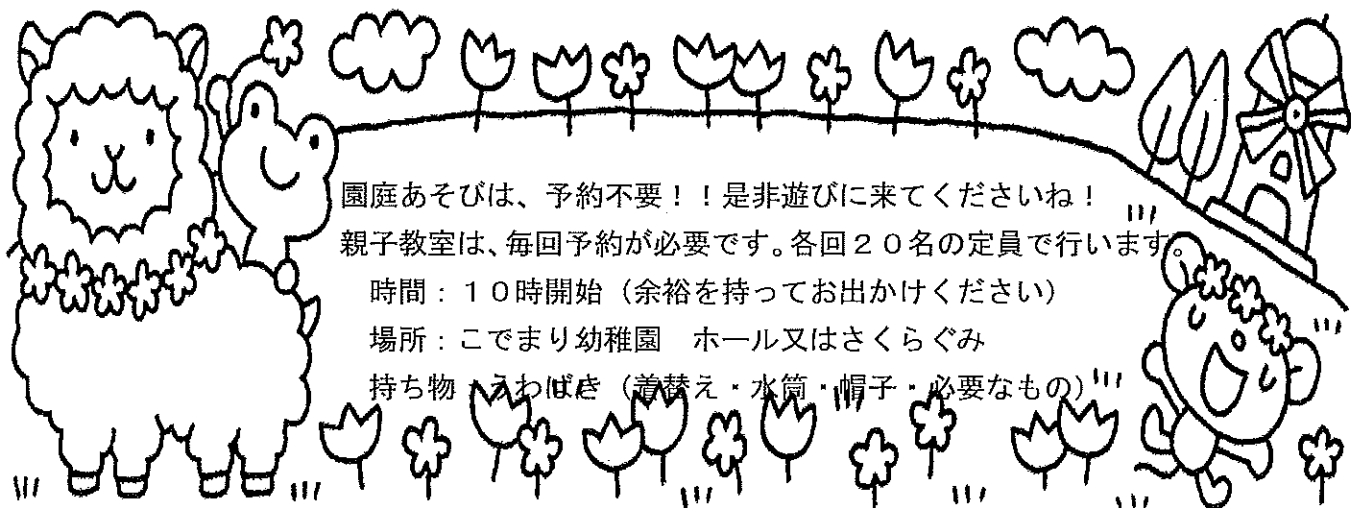 園庭あそびは、予約不要！！是非遊びに来てくださいね！
親子教室は、毎回予約が必要です。各回２０名の定員で行います。
時間：１０時開始（余裕を持ってお出かけください）
場所：こでまり幼稚園　ホール又はさくらぐみ
持ち物：うわばき（着替え・水筒・帽子・必要なもの）